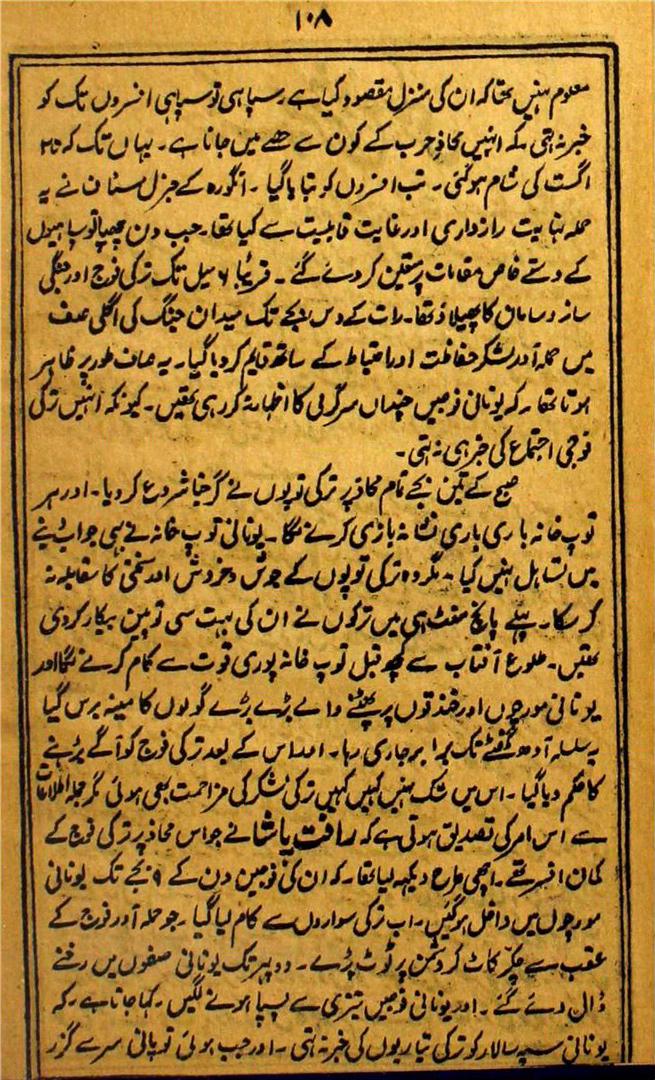 ۱۰۸
معلوم نہیں تھا کہ ان کی منزل مقصود کیا ہے۔ سپاہی تو سپاہی افسروں تک کو
خبر نہ تھی کہ انہیں محاذِ حرب کے کون سے حصے میں جانا ہے۔ یہاں تک کہ ۲۵
اگست کی شام ہو گئی۔ تب افسروں کو بتایا گیا۔ انگورہ کے جنرل سٹاف نے یہ
حملہ نہایت رازداری اور غایت قابلیت سے کیا تھا۔ جب دن چھپا تو سپاہیوں
کے دستے خاص مقامات پر متعین کر دئے گئے۔ قریباً ۶ میل تک ترکی فوج اور جنگی
ساز و سامان کا پھیلاؤ تھا۔ رات کے دس بجے تک میدان جنگ کی اگلی صف
میں حملہ آور لشکر حفاظت اور احتیاط کے ساتھ قایم کر دیا گیا۔ یہ صاف طور پر ظاہر
ہوتا تھا۔ کہ یونانی فوجیں چنداں سرگرمی کا اظہار نہ کر رہی تھیں۔ کیونکہ انہیں ترکی
فوجی اجتماع کی خبر ہی نہ تھی۔
صبح کے تین بجے تمام محاذ پر ترکی توپوں نے گرجنا شروع کر دیا۔ اور ہر
توپ خانہ باری باری نشانہ بازی کرنے لگا۔ یونانی توپ خانہ نے بھی جواب دینے
میں تساہل نہیں کیا۔ مگر وہ ترکی توپوں کے جوش و خروش اور سختی کا مقابلہ نہ
کر سکا۔ پہلے پانچ منٹ ہی میں ترکوں نے ان کی بہت سی توپیں بیکار کر دی
تھیں۔ طلوع آفتاب سے کچھ قبل توپ خانہ پوری قوت سے کام کرنے لگا اور
یونانی مورچوں اور خندقوں پر پھٹنے والے بڑے بڑے گولوں کا مینہ برس گیا
یہ سلسلہ آدھ گھنٹے تک برابر جاری رہا۔ اور اس کے بعد ترکی فوج کو آگے بڑہنے
کا حکم دیا گیا۔ اس میں شک نہیں کہیں کہیں ترکی لشکر کی مزاحمت بھی ہوئی مگر جملہ اطلاعات
سے اس امر کی تصدیق ہوتی ہے کہ رافت پاشا نے جو اس محاذ پر ترکی فوج کے
کمان افسر تھے۔ اچھی طرح دیکھ لیا تھا۔ کہ ان کی فوجیں دن کے ۹ بجے تک یونانی
مورچوں میں داخل ہو گئیں۔ اب ترکی سواروں سے کام لیا گیا۔ جو حملہ آور فوج کے
عقب سے چکر کاٹ کر دشمن پر ٹوٹ پڑے۔ دوپہر تک یونانی صفوں میں رخنے
ڈال دئے گئے۔ اور یونانی فوجیں تیزی سے پسپا ہونے لگیں۔ کہا جاتا ہے۔ کہ
یونانی سپہ سالار کو ترکی تیاریوں کی خبر نہ تھی۔ اور جب ہوئی تو پانی سر سے گزر